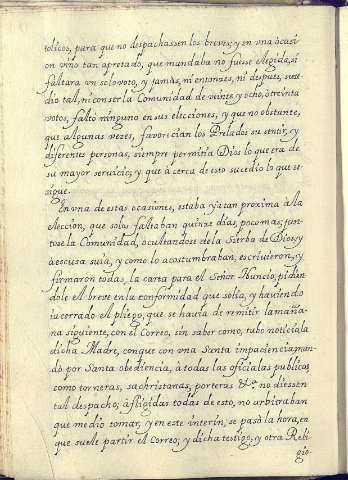 tolicos, para que no despachassen los breves; y en vna ocasi
on vino tan apretado, que mandaba no fuesse elegida, si
faltara vn solo voto, y jamàs, ni entonzes, ni despues, suce
dio tal, ni con ser la Comunidad de veinte y ocho, ò treinta
votos, faltò ninguno en sus elecciones, y que no obstante,
que algunas vezes, favorecian los Prelados su sentir, y
diferentes personas, siempre permitia Dios lo que era de
su mayor servicio; y que à cerca de esto sucedio lo que se
sigue.
En vna de estas ocasiones, estaba yà tan proxima à la
elección, que solo faltaban quinze dias, poco mas; jun
tose la Comunidad, ocultandose de la Sierba de Dios, y
à escusa suia, y como lo acostumbraban, escrivieron, y
firmaron todas, la carta para el Señor Nuncio, pidien
dole el breve en la conformidad que solia, y haviendo
ia cerrado el pliego, que se havia de remitir la maña
na siguiente, con el Correo, sin saber como, tubo noticia la
dicha Madre, con que con vna Santa impaciencia, man
dò por Santa obediencia, à todas las oficialas publicas,
como torneras, sachristanas, porteras &c. no diessen
tal despacho; àfligidas todas de esto, no arbitraban
que medio tomar, y en este interin, se pasò la hora, en
que suele partir el Correo; y dicha testigo, y otra Reli
gio